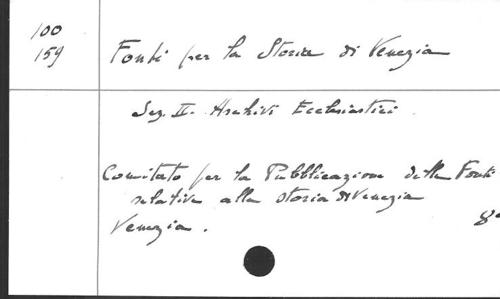 100
159
Fonti per la Storia di Venezia
Sez. II. Archivi Ecclesiastici.
Comitato per la Pubblicazione delle Fonti
relative alla storia di Venezia
Venezia.
8º